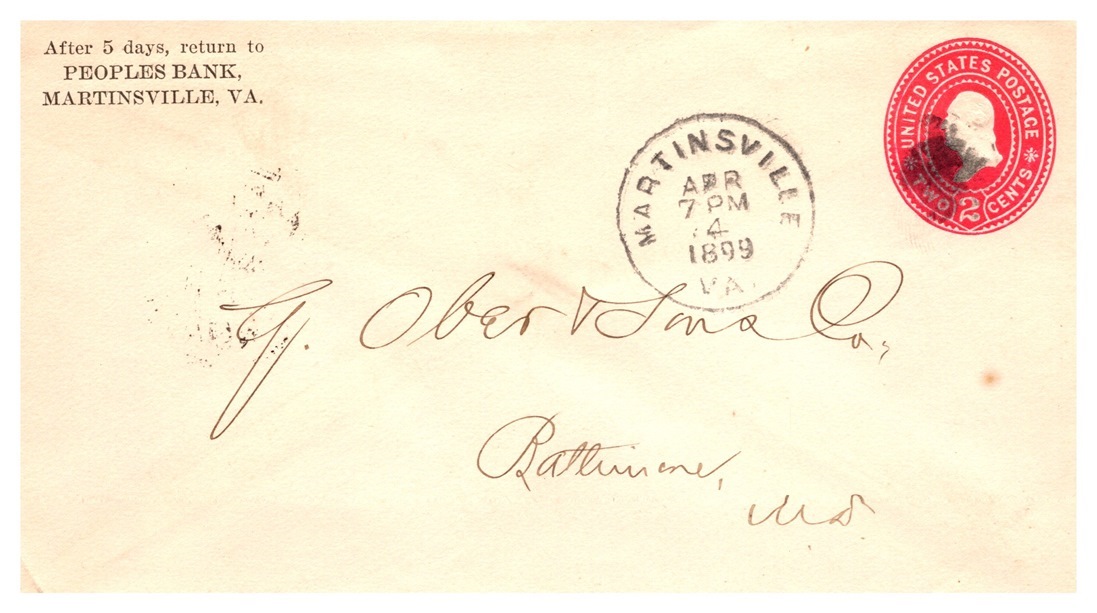 After 5 days, return to
PEOPLES BANK,
MARTINSVILLE, VA.
UNITED STATES POSTAGE
TWO 2 CENTS
MARTINSVILLE
APR
7 PM
4
1899
VA.
G. Ober & Sons Co,
Baltimore,
Md